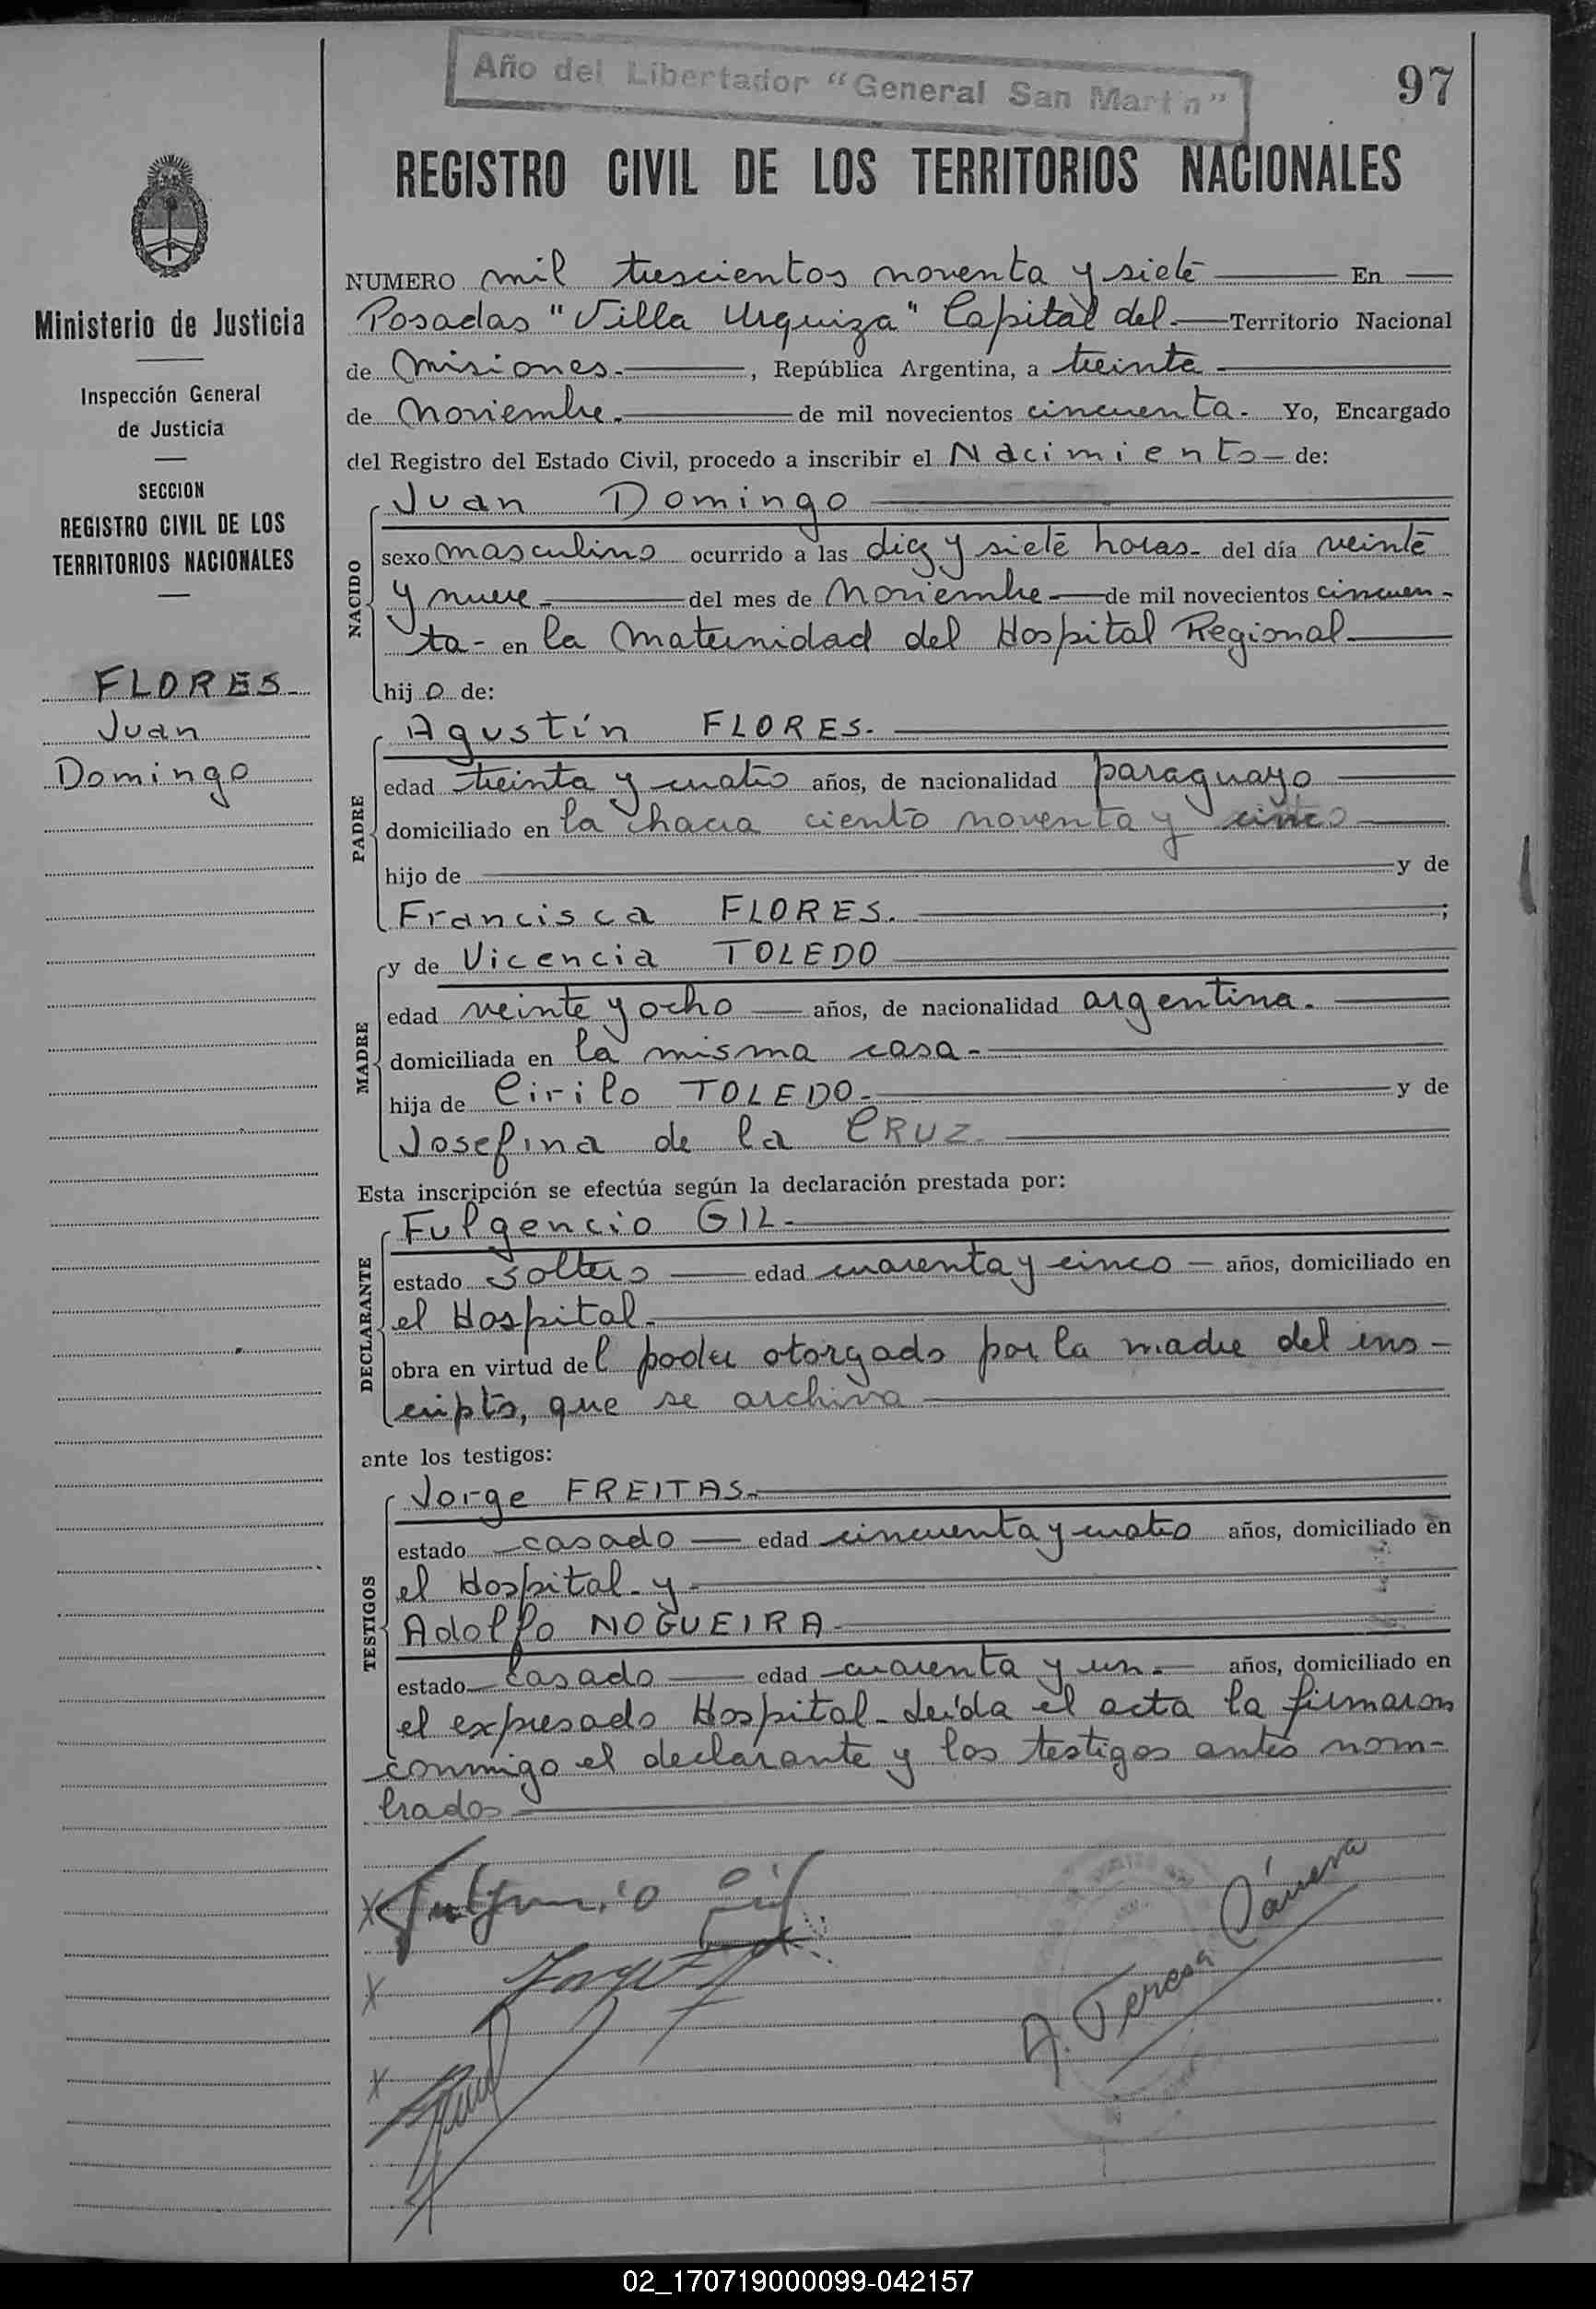 Año del Libertador "General San Martin"
97
REGISTRO CIVIL DE LOS TERRITORIOS NACIONALES
Ministerio de Justicia
Inspección General
de Justicia
SECCION
REGISTRO CIVIL DE LOS
TERRITORIOS NACIONALES
FLORES
Juan
Domingo
NUMERO mil trescientos noventa y siete En
Posadas "Villa Urquiza" Capital del Territorio Nacional
de Misiones , República Argentina, a treinta
de Noviembre. de mil novecientos cincuenta. Yo, Encargado
del Registro del Estado Civil, procedo a inscribir el Nacimiento de:
NACIDO
Juan Domingo
sexo masculino ocurrido a las diez y siete horas del día veinte
y nueve del mes de Noviembre de mil novecientos cincuen-
ta- en la Maternidad del Hospital Regional
hijo de:
PADRE
Agustín FLORES.
edad treinta y cuatro años, de nacionalidad paraguayo
domiciliado en la chacra ciento noventa y cinco
hijo de y de
Francisca FLORES. ;
MADRE
y de Vicencia TOLEDO
edad veinte y ocho años, de nacionalidad argentina.
domiciliada en la misma casa-
hija de Cirilo TOLEDO- y de
Josefina de la CRUZ.
Esta inscripción se efectúa según la declaración prestada por:
DECLARANTE
Fulgencio GIL-
estado soltero edad cuarenta y cinco años, domiciliado en
el Hospital-
obra en virtud del poder otorgado por la madre del ins-
cripto, que se archiva
ante los testigos:
TESTIGOS
Jorge FREITAS-
estado casado edad cincuenta y cuatro años, domiciliado en
el Hospital- y
Adolfo NOGUEIRA
estado casado edad cuarenta y un- años, domiciliado en
el expresado Hospital- Leída el acta la firmaron
conmigo el declarante y los testigos antes nom-
brados
Fulgencio Gil
A. Teresa Cánera
02_170719000099-042157